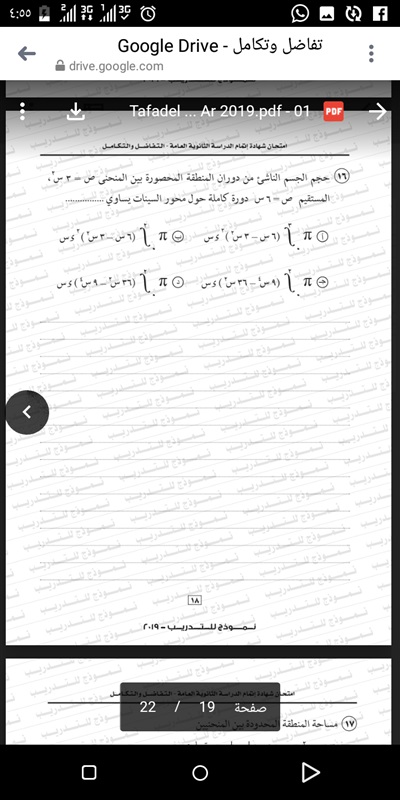 ٤:٥٥
تفاضل وتكامل - Google Drive
drive.google.com
نموذج للتدريب - ٢٠١٩
Tafadel ... Ar 2019.pdf - 01
PDF
امتحان شهادة إتمام الدراسة الثانوية العامة - التفاضل والتكامل
١٦ حجم الجسم الناشئ من دوران المنطقة المحصورة بين المنحنى ص = ٣ س٢،
المستقيم ص = ٦ س دورة كاملة حول محور السينات يساوي ................
أ π ∫ (٦ س - ٣ س٢)٢ ء س ب π ∫ (٦ س - ٣ س٢) ء س
ج π ∫ (٩ س٤ - ٣٦ س٢) ء س د π ∫ (٣٦ س٢ - ٩ س٤) ء س
١٨
نموذج للتدريب - ٢٠١٩
امتحان شهادة إتمام الدراسة الثانوية العامة - التفاضل والتكامل
صفحة 19 / 22
١٧ مساحة المنطقة المحدودة بين المنحنيين